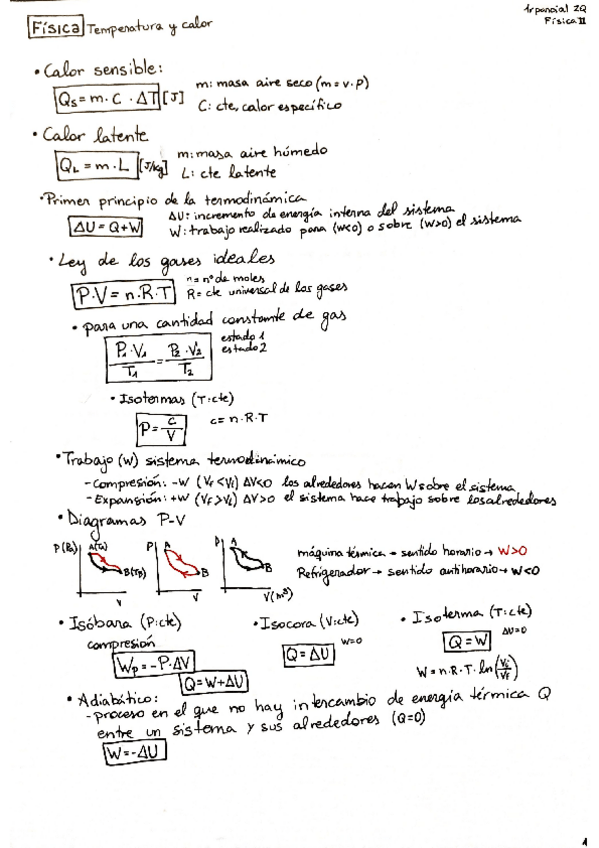 1r parcial 2Q
Física II
Física Temperatura y calor
• Calor sensible:
Qs = m · C · ΔT [J]
m: masa aire seco (m = v · ρ)
C: cte, calor específico
• Calor latente
QL = m · L [J/kg]
m: masa aire húmedo
L: cte latente
• Primer principio de la termodinámica
ΔU = Q + W
ΔU: incremento de energía interna del sistema
W: trabajo realizado para (W<0) o sobre (W>0) el sistema
• Ley de los gases ideales
P·V = n·R·T
n = nº de moles
R = cte universal de los gases
• para una cantidad constante de gas
P1·V1/T1 = P2·V2/T2
estado 1
estado 2
• Isotermas (T: cte)
P = c/V
c = n·R·T
• Trabajo (W) sistema termodinámico
- Compresión: -W (VF < Vi) ΔV<0 los alrededores hacen W sobre el sistema
- Expansión: +W (VF > Vi) ΔV>0 el sistema hace trabajo sobre los alrededores
• Diagramas P-V
P (Pa) A(TA) B(TB) V
P A B V
P A B V (m³)
máquina térmica → sentido horario → W>0
Refrigerador → sentido antihorario → W<0
• Isóbara (P: cte)
compresión
Wp = -P·ΔV
Q = W + ΔU
• Isocora (V: cte)
W=0
Q = ΔU
• Isoterma (T: cte)
ΔU=0
Q = W
W = n·R·T·ln(Vi/VF)
• Adiabático:
- proceso en el que no hay intercambio de energía térmica Q
entre un sistema y sus alrededores (Q=0)
W = -ΔU
1